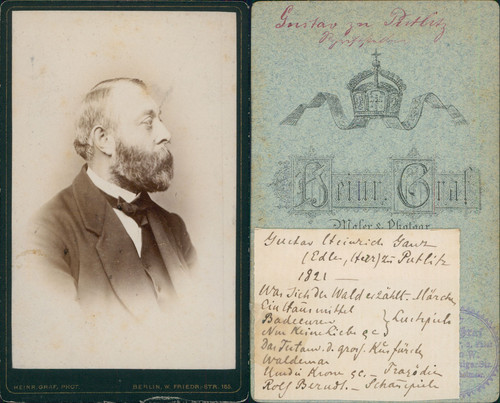 HEINR. GRAF, PHOT.
BERLIN, W. FRIEDR-STR. 165.
Gustav zu Putlitz
Heinr. Graf
Maler & Photogr.
Gustav Heinrich Ganz
(Edler, Herr) zu Putlitz
1821 —
Was sich der Wald erzählt – Märchen
Ein Hausmittel
Badecuren } Lustspiele
Nur keine Liebe &c
Das Testam. d. groß. Kurfürsten
Waldemar
Um die Krone &c. – Tragödie
Rolf Berndt. – Schauspiele